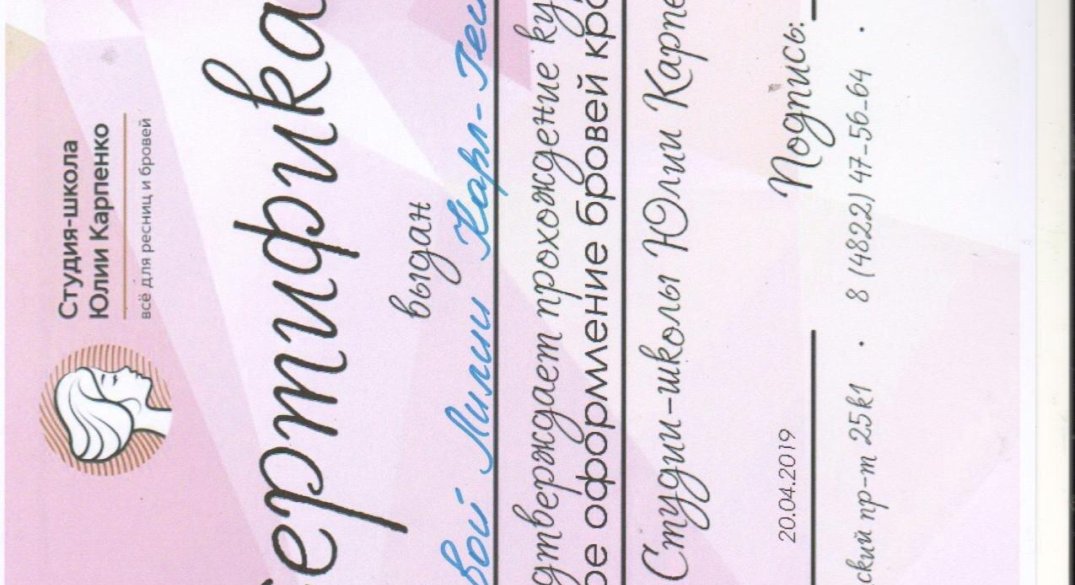 Студия-школа
Юлии Карпенко
всё для ресниц и бровей
ертифика
выдан
вой Лилии Карл-Ген
дтверждает прохождение ку
ое оформление бровей кра
Студии-школы Юлии Карпе
20.04.2019 Подпись:
ский пр-т 25к1 · 8 (4822) 47-56-64 ·